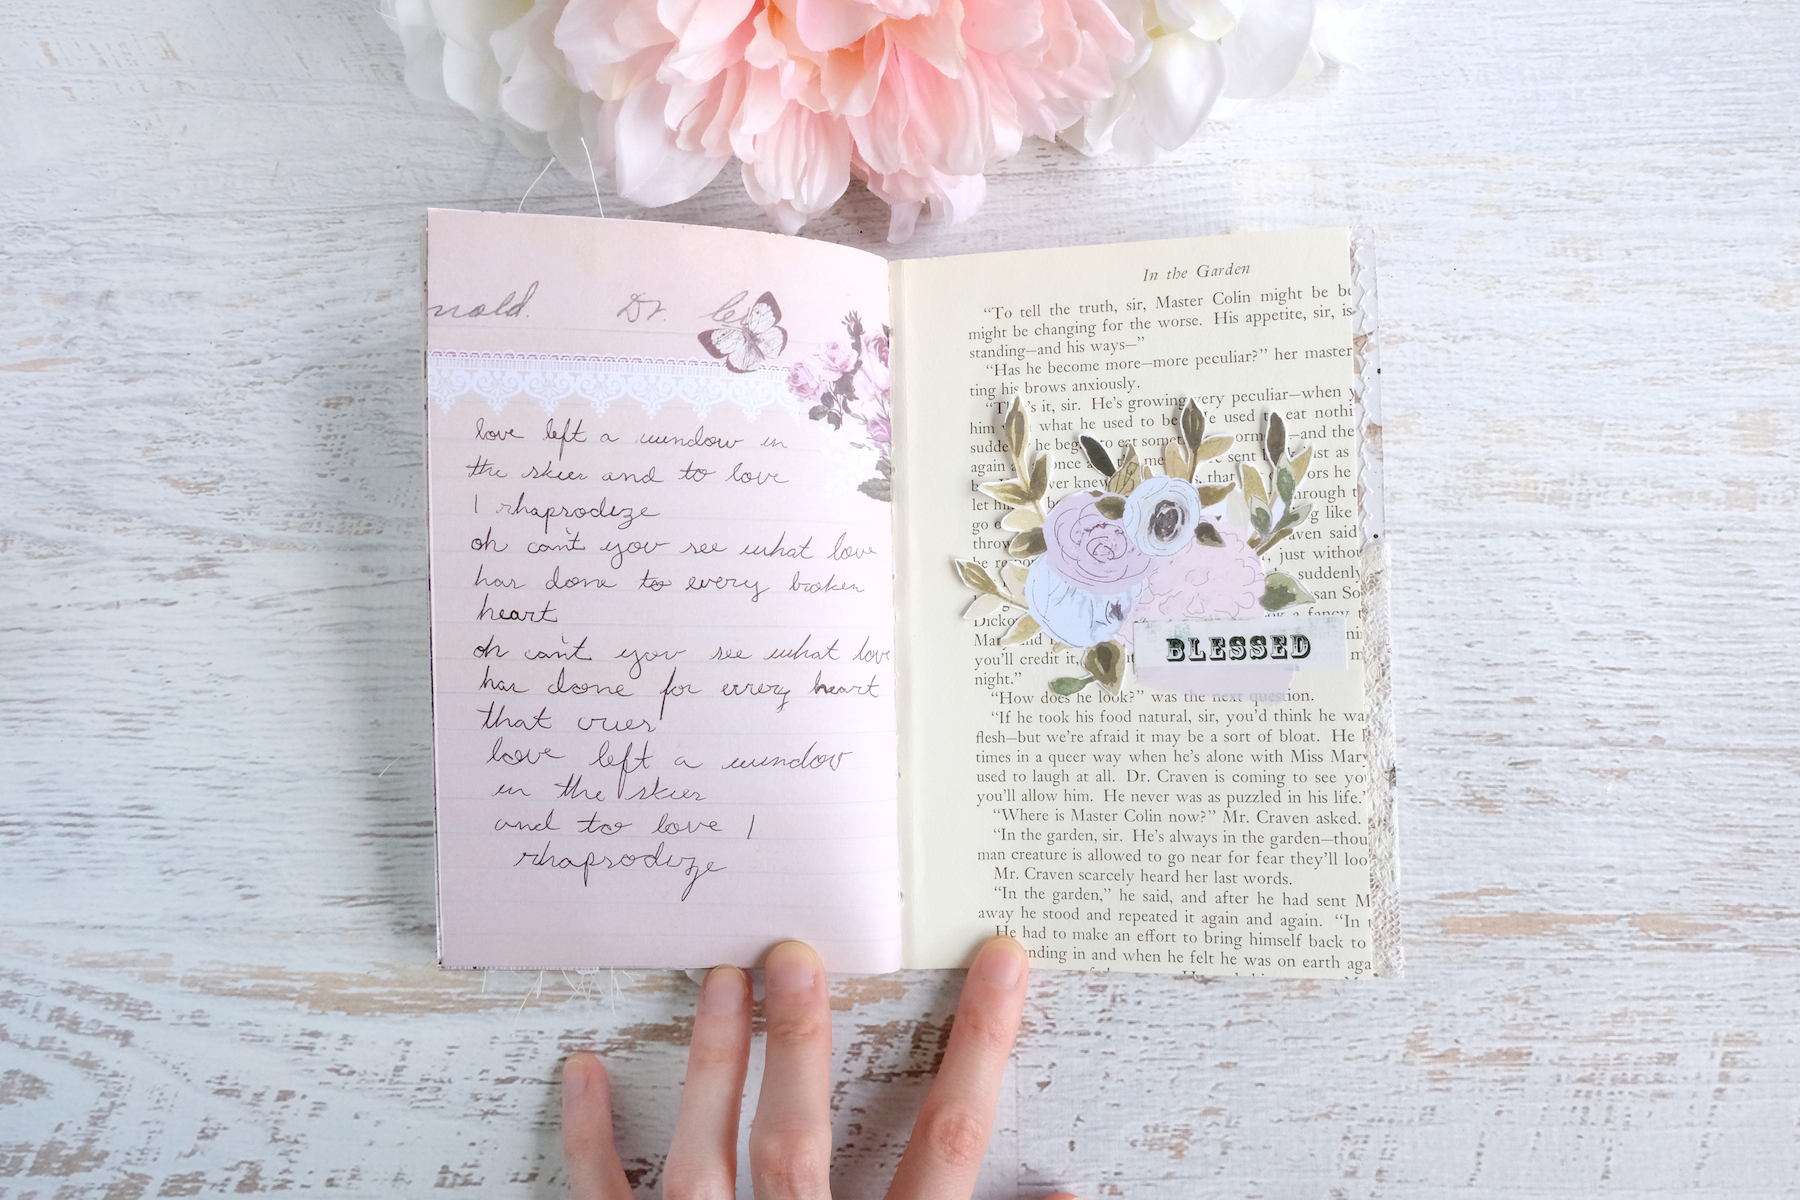 nold. Dr. le
love left a window in
the skies and to love
I rhaprodize
oh can't you see what love
has done to every broken
heart
oh can't you see what love
has done for every heart
that cries
love left a window
in the skies
and to love I
rhaprodize
In the Garden
“To tell the truth, sir, Master Colin might be be
might be changing for the worse. His appetite, sir, is
standing—and his ways—”
“Has he become more—more peculiar?” her master
ting his brows anxiously.
it, sir. He's growing very peculiar—when y
him what he used to be. He used to eat nothi
sudde he began to eat —and the
again once sent back just as
ever knew that ors he
let him through t
go ng like
throw aven said
just withou
suddenly
san So
Dicko a fancy
Mary and
you'll credit it,
night.”
“How does he look?” was the next question.
“If he took his food natural, sir, you'd think he wa
flesh—but we're afraid it may be a sort of bloat. He l
times in a queer way when he's alone with Miss Mar
used to laugh at all. Dr. Craven is coming to see yo
you'll allow him. He never was as puzzled in his life.”
“Where is Master Colin now?” Mr. Craven asked.
“In the garden, sir. He's always in the garden—thou
man creature is allowed to go near for fear they'll loo
Mr. Craven scarcely heard her last words.
“In the garden,” he said, and after he had sent M
away he stood and repeated it again and again. “In
He had to make an effort to bring himself back to
anding in and when he felt he was on earth aga
BLESSED